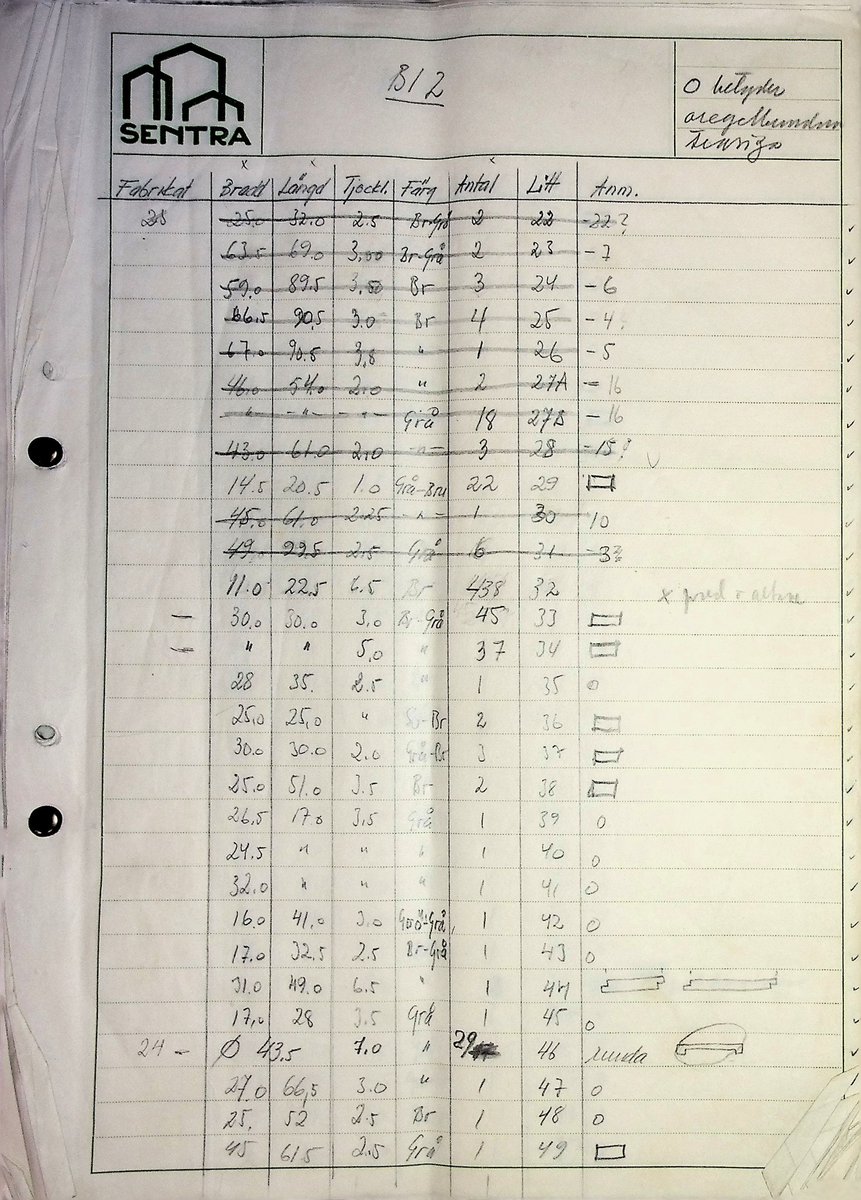 B12
SENTRA
O betyder
oregelbunden
Fabrikat Bredd Längd Tjockl. Färg Antal Litt Anm.
28 25.0 32.0 2.5 Br-Grå 2 22 -22?
63.5 69.0 3,00 Br-Grå 2 23 -7
59.0 89.5 3,50 Br 3 24 -6
66.5 90,5 3.0 Br 4 25 -4?
67.0 90.8 3,8 " 1 26 -5
46.0 54.0 2.0 " 2 27A - 16
" - " - - " - Grå 18 27B - 16
43.0 61.0 2,0 - " - 3 28 -15?
14.5 20.5 1.0 Grå-Bru 22 29
45.0 61.0 2.25 - " - 1 30 10
49.0 99.5 2.5 Grå 6 31 -3?
11.0 22.5 6.5 Br 438 32
30.0 30.0 3,0 Br-Grå 45 33
" " 5,0 " 37 34
28 35. 2.5 " 1 35 O
25,0 25,0 " Br 2 36
30.0 30.0 2.0 Grå-Br 3 37
25.0 51.0 3.5 Br 2 38
26,5 17.0 3,5 Grå 1 39 O
24.5 " " " 1 40 O
32.0 " " " 1 41 O
16.0 41.0 3.0 Grö-Grå 1 42 O
17.0 32.5 2.5 Br-Grå 1 43 O
31.0 49.0 6.5 " 1 44
17,0 28 3.5 Grå 1 45 O
24 - Ø 43.5 7.0 " 29 46 runda
27.0 66,5 3.0 " 1 47 O
25. 52 2.5 Br 1 48 O
45 61.5 2.5 Grå 1 49